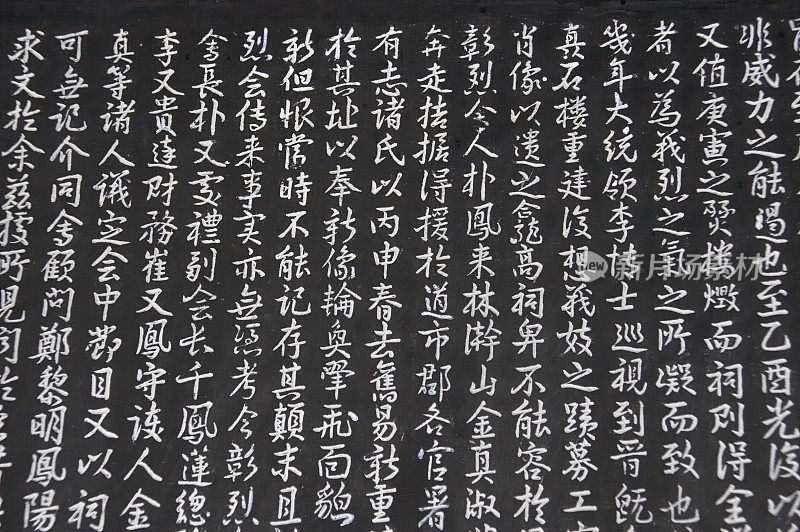 非威力之能遏也至乙酉光復以
又值庚寅之燹樓燬而祠則得全
者以為義烈之氣之所凝而致也
幾年大統領李博士巡視到晋旣
真石樓重建後想義妓之蹟募工
肖像以遺之龕高祠卑不能容於
彰烈今人朴鳳来林澣山金真淑
奔走拮据得援於道市郡各官署
有志諸氏以丙申春去舊易新重
於其址以奉新像輪奐翬飛面貌
新但恨當時不能記存其顛末且
烈会传来事实亦無憑考今彰烈
會長朴又雯禮副会长千鳳蓮總
李又貴達財務崔又鳳守護人金
真等諸人議定会中節目又以祠
可無記介同會顧問鄭黎明鳳陽
求文於余茲據所見闻於